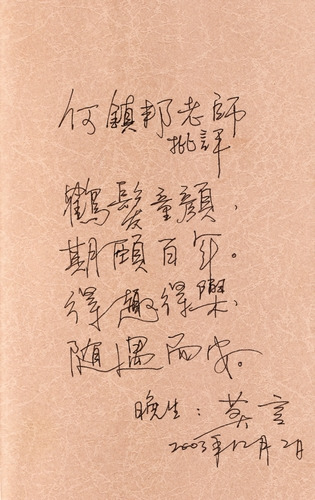 何鎮邦老師
批評
鶴髮童顔，
期頤百年。
得趣得樂，
随遇而安。
晚生：英言
2003年12月2日